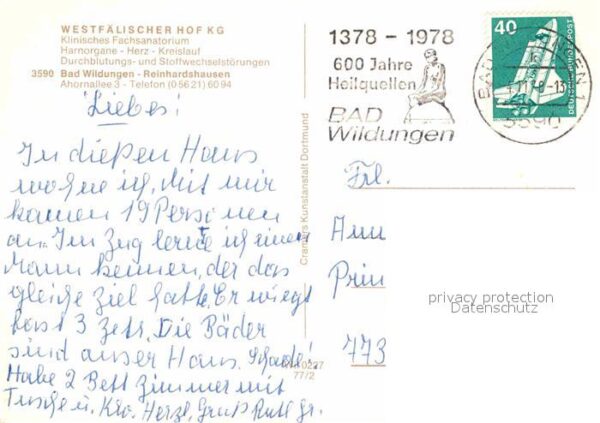 WESTFÄLISCHER HOF KG
Klinisches Fachsanatorium
Harnorgane - Herz - Kreislauf
Durchblutungs- und Stoffwechselstörungen
3590 Bad Wildungen - Reinhardshausen
Ahornallee 3 - Telefon (05621) 6094
Liebes!
In dießen Haus
wohne ich, Mit mir
kamen 19 Personen
an. Im Zug lernte ich einen
Mann kennen, der das
gleiche Ziel hatte. Er wiegt
fast 3 Zetr. Die Bäder
sind auser Haus. Schade!
Habe 2 Bett Zimmer mit
Tusche u. Klo. Herzl. Gruß Ruth
Cramers Kunstanstalt Dortmund
0227
77/2
1378 - 1978
600 Jahre
Heilquellen
BAD
Wildungen
40
DEUTSCHE BUNDESPOST
BAD
3590
Frl.
Ann
Prin
773
privacy protection
Datenschutz